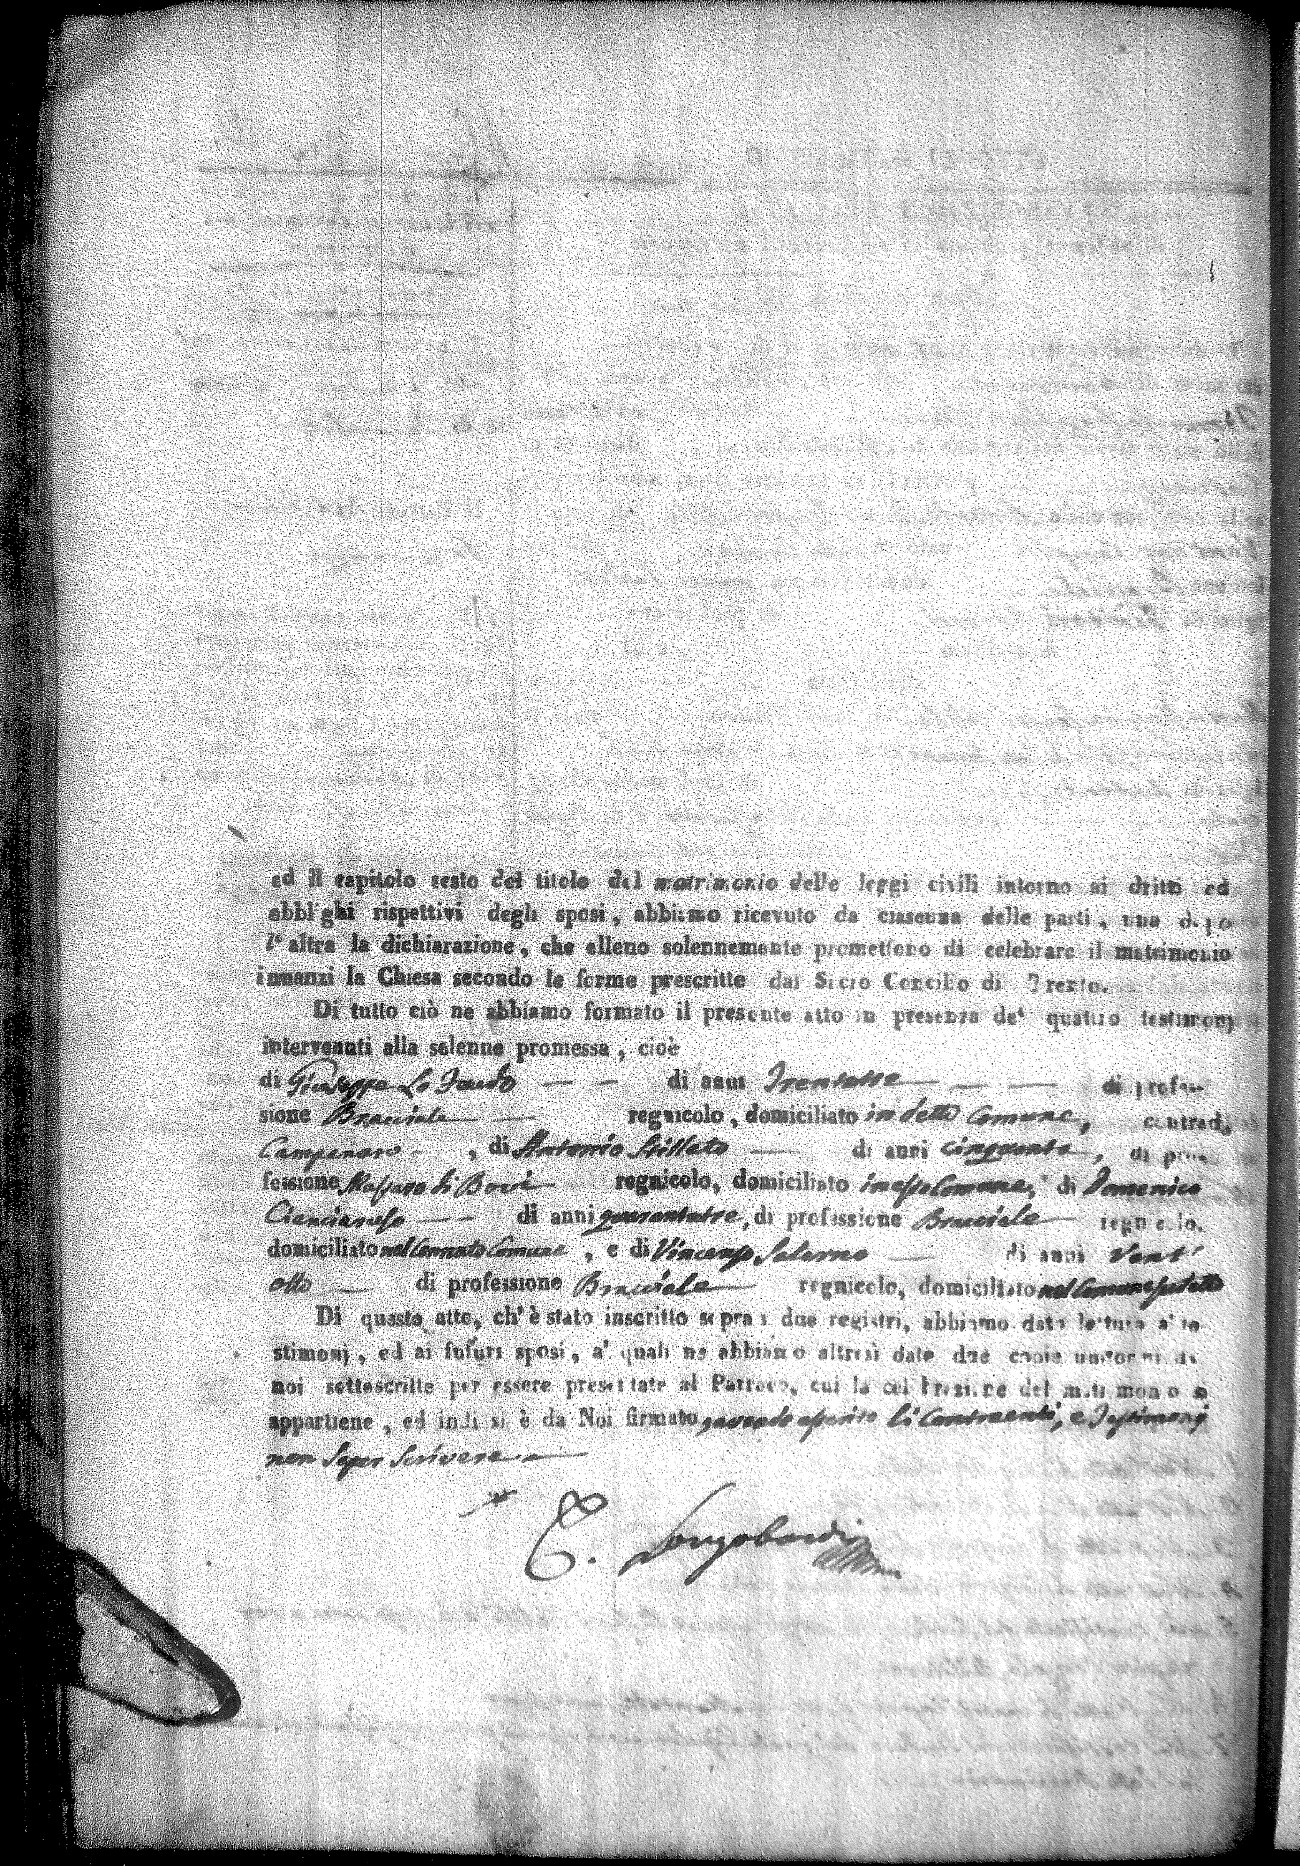 ed il capitolo sesto del titolo del matrimonio delle leggi civili intorno ai dritti ed
obblighi rispettivi degli sposi, abbiamo ricevuto da ciascuna delle parti, una dopo
l'altra la dichiarazione, che elleno solennemente promettono di celebrare il matrimonio
innanzi la Chiesa secondo le forme prescritte dal Sacro Concilio di Trento.
Di tutto ciò ne abbiamo formato il presente atto in presenza de' quattro testimonj
intervenuti alla solenne promessa, cioè
di Giuseppe Lo Jaudo di anni Trentatre di profes-
sione Bracciale regnicolo, domiciliato in detto Comune, contrada
Campanaro, di Antonio Stillato di anni cinquanta, di pro-
fessione Massaro di Bovi regnicolo, domiciliato in esso Comune, di Domenico
Cianciaruso di anni quarantatre, di professione Bracciale regnicolo,
domiciliato nel Cennato Comune, e di Vincenzo Salerno di anni Vent'
otto di professione Bracciale regnicolo, domiciliato nel Comune sudetto
Di questo atto, ch'è stato inscritto sopra i due registri, abbiamo data lettura a' te-
stimonj, ed ai futuri sposi, a' quali ne abbiamo altresì date due copie uniformi da
noi sottoscritte per essere presentate al Parroco, cui la celebrazione del matrimonio si
appartiene, ed indi si è da Noi firmato, avendo asserito li Contraenti, e Testimonj
non saper scrivere
C. Longobardi